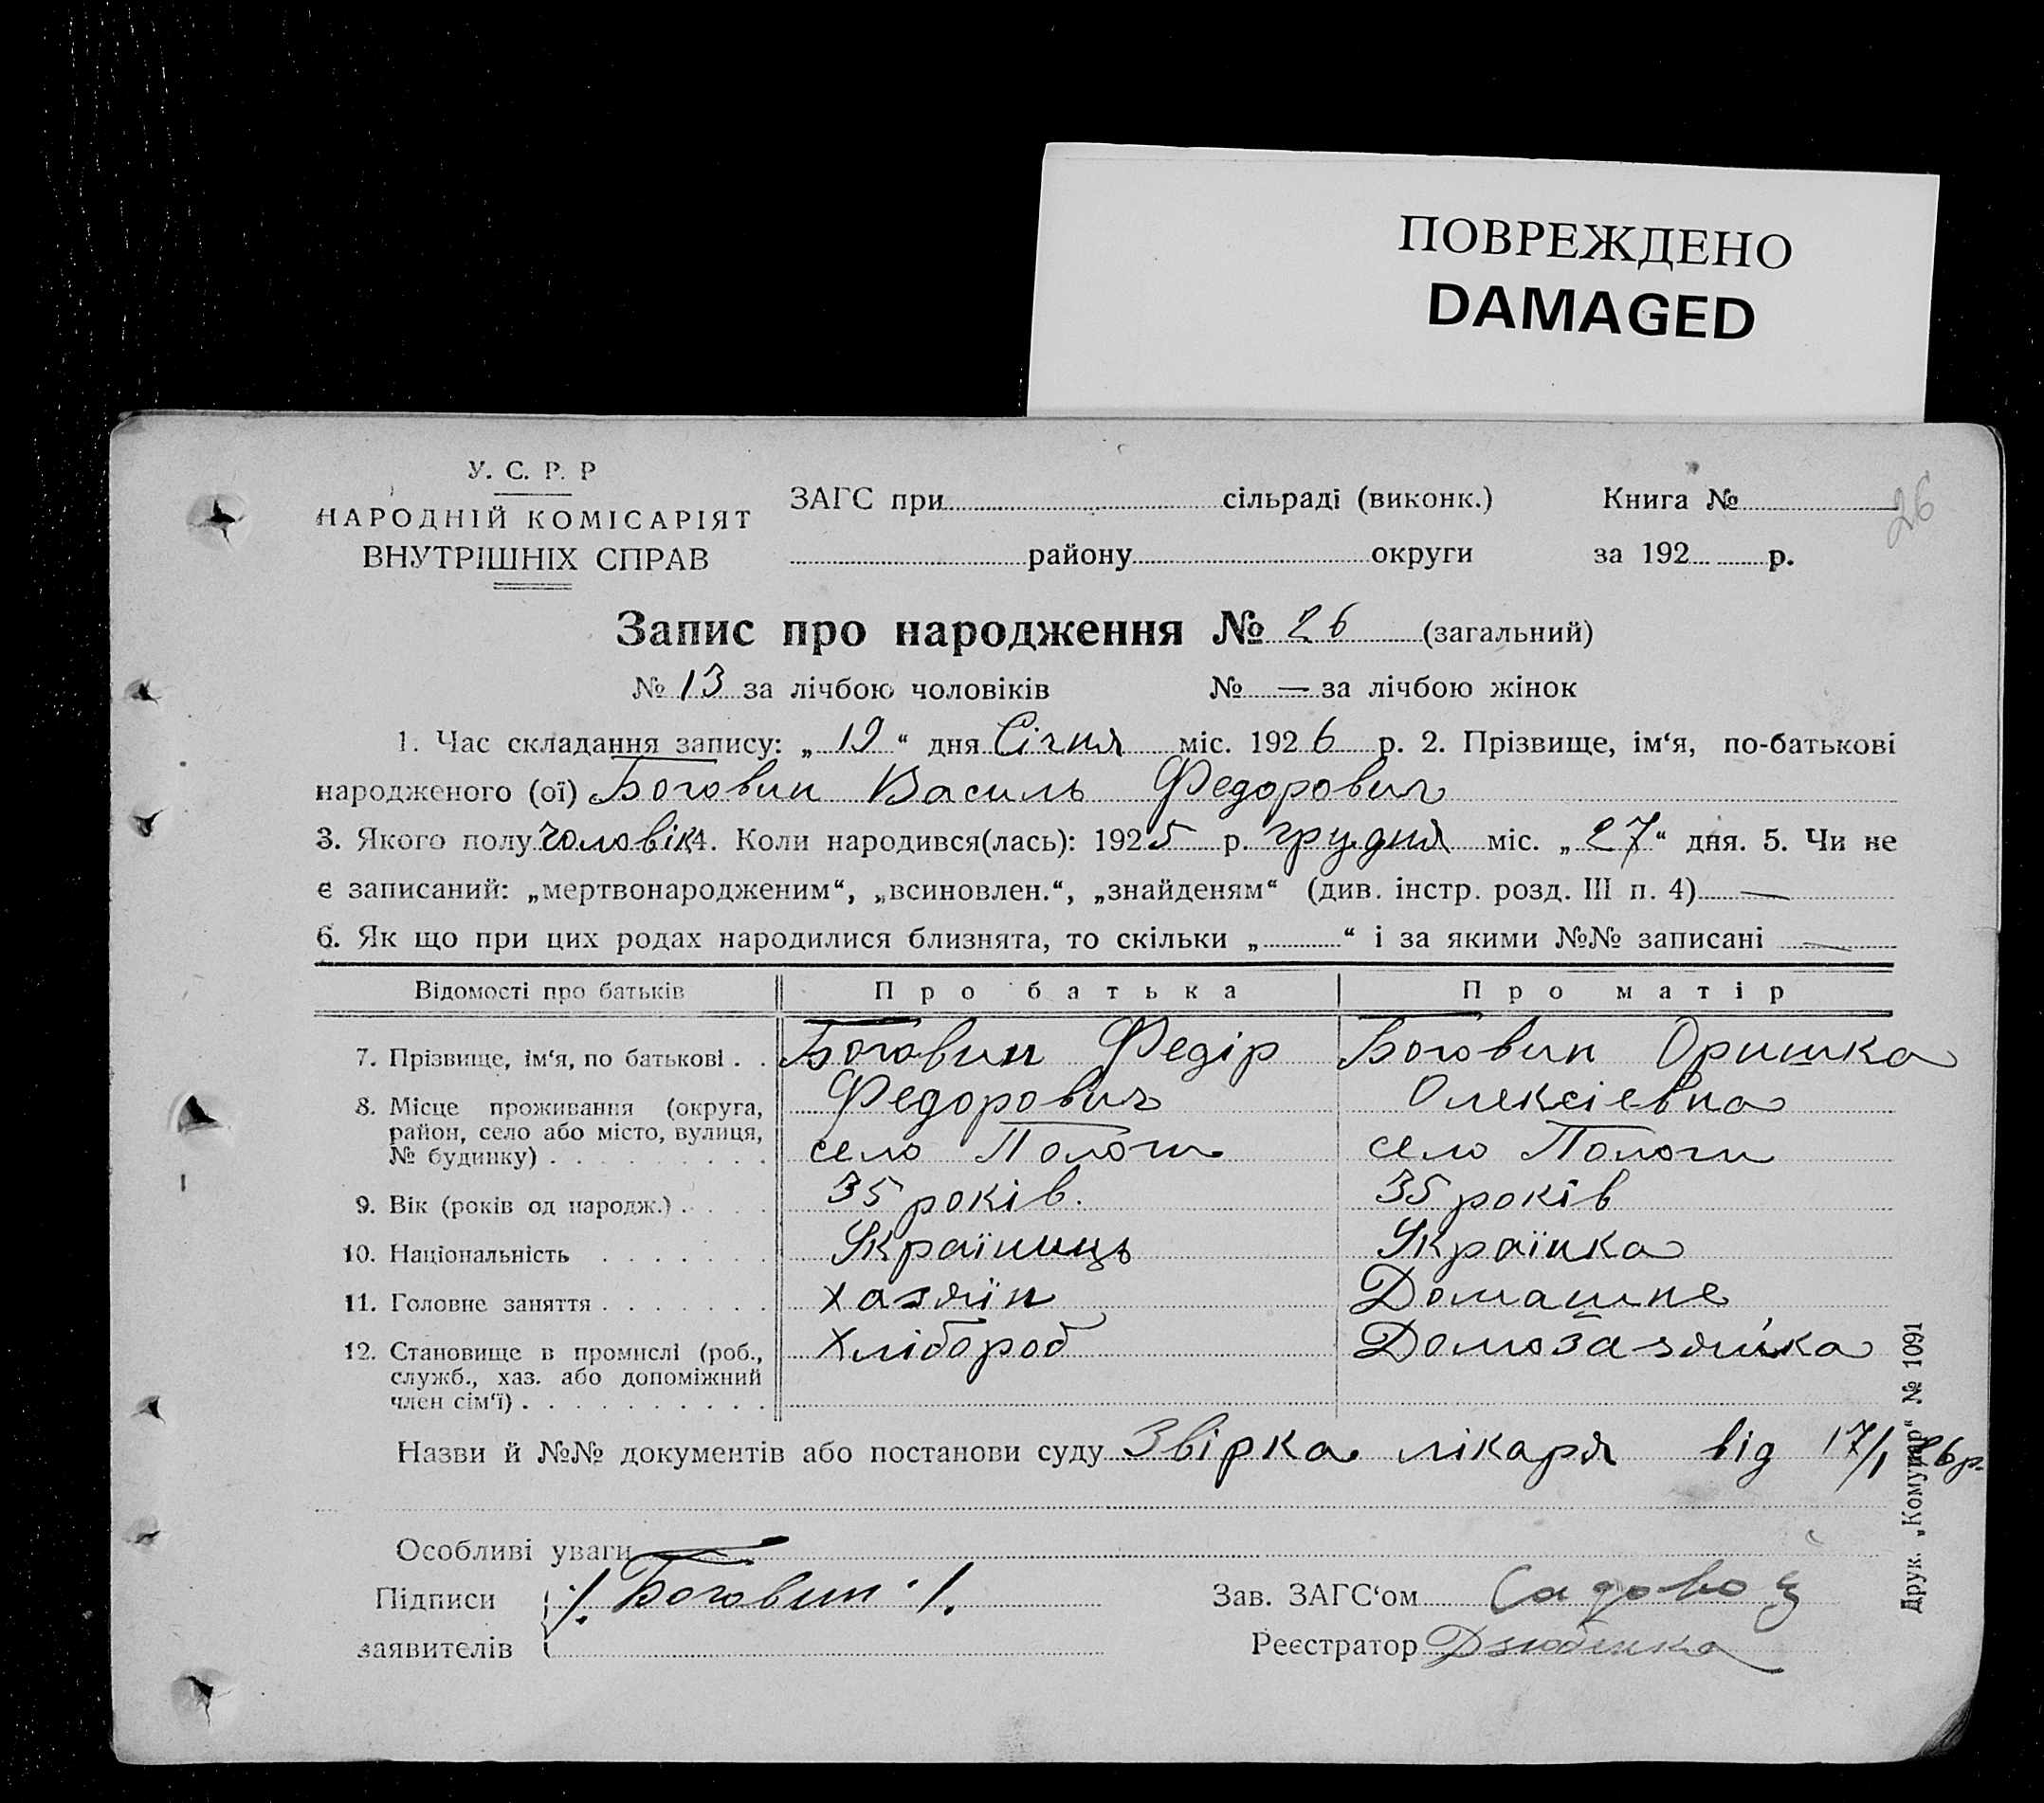 ПОВРЕЖДЕНО
DAMAGED
У. С. Р. Р
НАРОДНІЙ КОМІСАРІЯТ
ВНУТРІШНІХ СПРАВ
ЗАГС при сільраді (виконк.) Книга №
району округи за 192 р.
26
Запис про народження № 26 (загальний)
№ 13 за лічбою чоловіків № — за лічбою жінок
1. Час складання запису: „19“ дня Січня міс. 1926 р. 2. Прізвище, ім‘я, по-батькові
народженого (ої) Боговин Василь Федорович
3. Якого полу чоловік 4. Коли народився(лась): 1925 р. грудня міс. „27“ дня. 5. Чи не
є записаний: „мертвонародженим“, „всиновлен.“, „знайденям“ (див. інстр. розд. III п. 4) —
6. Як що при цих родах народилися близнята, то скільки „ “ і за якими №№ записані —
Відомості про батьків Про батька Про матір
7. Прізвище, ім‘я, по батькові . . Боговин Федір Боговин Оришка
Федорович Олексіевна
8. Місце проживання (округа,
район, село або місто, вулиця,
№ будинку) . . . . . . . . . село Пологи село Пологи
9. Вік (років од народж.) . . . . 35 років. 35 років
10. Національність . . . . . . . Україниць Українка
11. Головне заняття . . . . . . . хазяїн Домашне
12. Становище в промислі (роб., Хлібороб Домозазяйка
служб., хаз. або допоміжний
член сім‘ї) . . . . . . . . . .
Назви й №№ документів або постанови суду Звірка лікаря від 17/I 26 р.
Особливі уваги
Підписи /. Боговин ./. Зав. ЗАГС‘ом Садовой
заявителів Реєстратор Дзюбенка
Друк. „Комунар“ № 1091